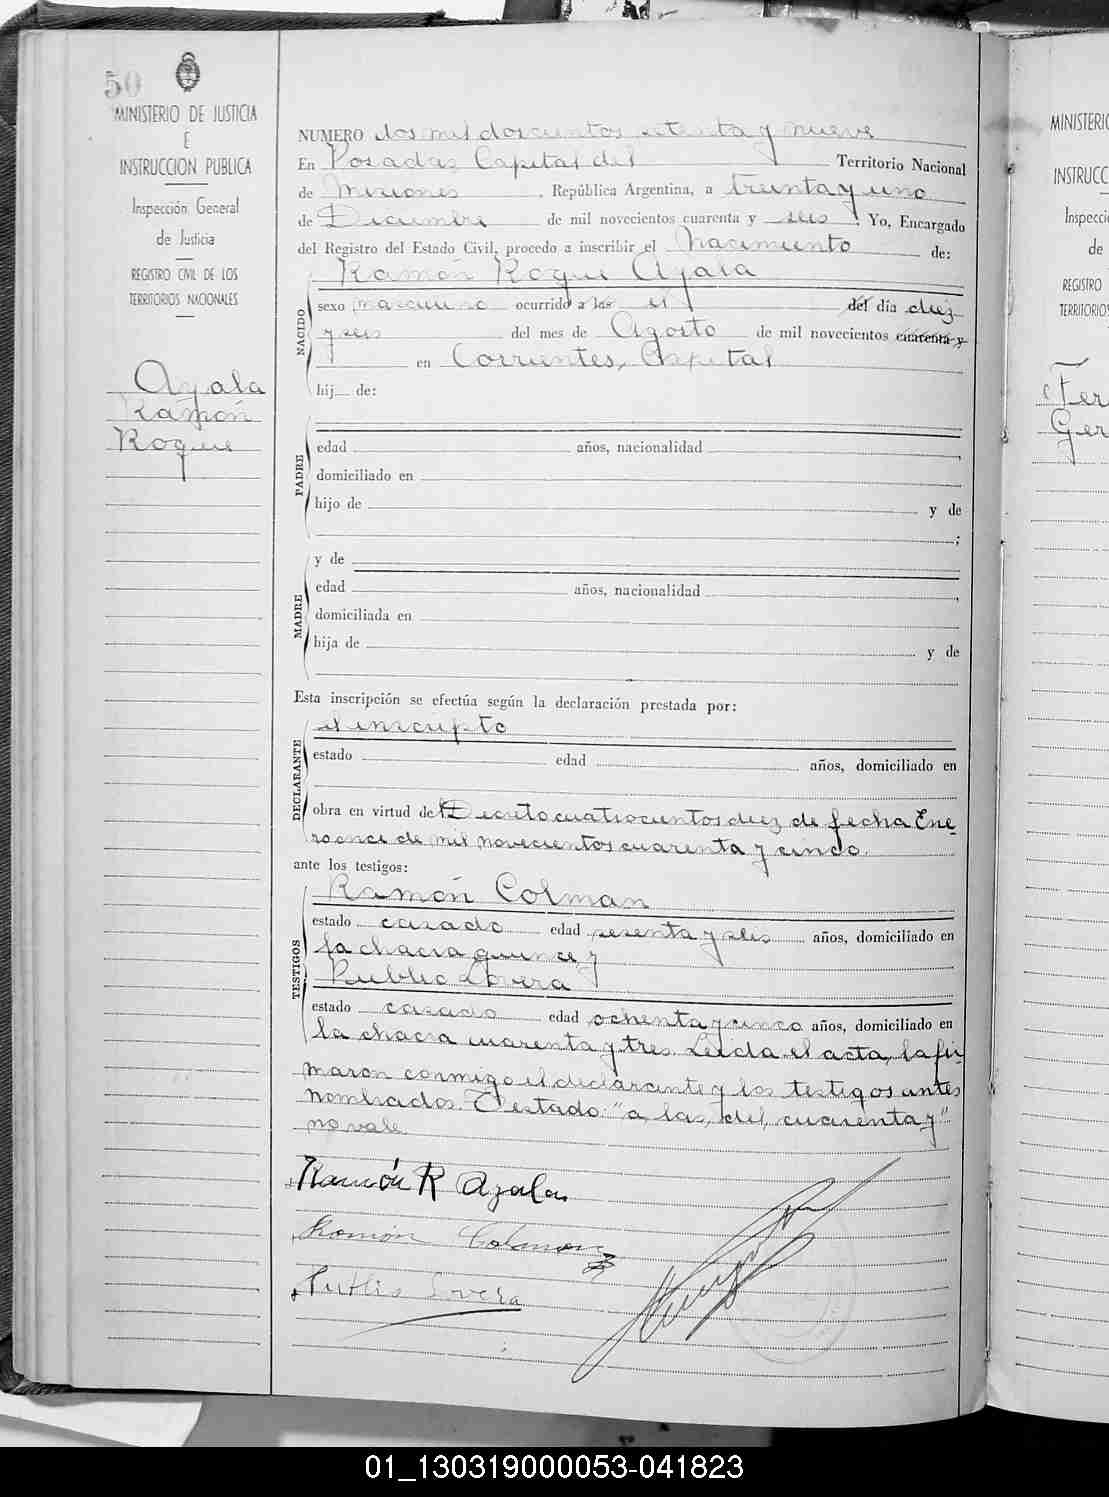 50
MINISTERIO DE JUSTICIA
E
INSTRUCCION PUBLICA
Inspección General
de Justicia
REGISTRO CIVIL DE LOS
TERRITORIOS NACIONALES
Ayala
Ramón
Roque
NUMERO dos mil doscientos setenta y nueve
En Posadas, Capital del Territorio Nacional
de Misiones, República Argentina, a treinta y uno
de Diciembre de mil novecientos cuarenta y seis. Yo, Encargado
del Registro del Estado Civil, procedo a inscribir el Nacimiento de:
Ramón Roque Ayala
NACIDO
sexo masculino ocurrido a las el del día diez
y seis del mes de Agosto de mil novecientos cuarenta y
en Corrientes, Capital
hij de:
PADRE
edad años, nacionalidad
domiciliado en
hijo de y de
;
MADRE
y de
edad años, nacionalidad
domiciliada en
hija de y de
Esta inscripción se efectúa según la declaración prestada por:
DECLARANTE
el inscripto
estado edad años, domiciliado en
obra en virtud del Decreto cuatrocientos diez de fecha Ene-
ro once de mil novecientos cuarenta y cinco.
ante los testigos:
TESTIGOS
Ramón Colman
estado casado edad sesenta y seis años, domiciliado en
la chacra quince y
Publio Lovera
estado casado edad ochenta y cinco años, domiciliado en
la chacra cuarenta y tres. Leída el acta, la fir-
maron conmigo el declarante y los testigos antes
nombrados. Testado: "a las, del, cuarenta y"
no vale.
Ramón R Ayala
Ramón Colman
Publio Lovera
MINISTERIO
INSTRUCC
Inspecci
de
REGISTRO
TERRITORIOS
Fer
Ger
01_130319000053-041823